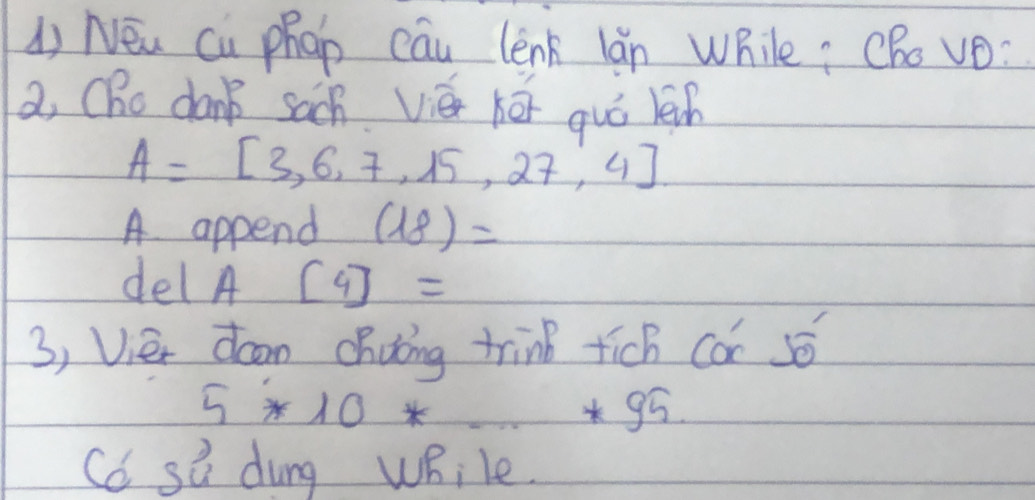 1) Nêu cú pháp câu lệnh lặp While; Cho VD:
2, Cho danh sách. Viết kết quả lệnh
A = [3, 6, 7, 15, 27, 4]
A append (18) =
del A [4] =
3, Viết đoạn chương trình tích các số
5 * 10 * .... * 95.
Có sử dụng While.